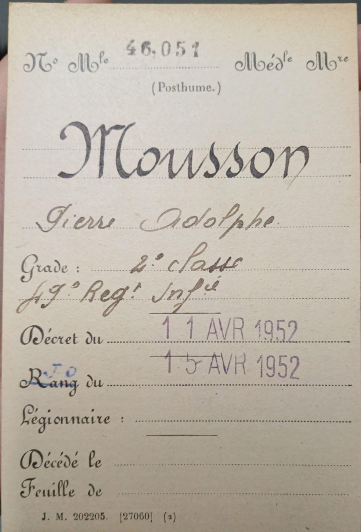 Nº Mˡᵉ 46.051 Médˡᵉ Mʳᵉ
(Posthume.)
Mousson
Pierre Adolphe
Grade : 2ᵉ classe
49ᵉ Regᵗ Infⁱᵉ
Décret du 11 AVR 1952
Rang du 15 AVR 1952
Légionnaire :
Décédé le
Feuille de
J. M. 202205. [27060] (2)